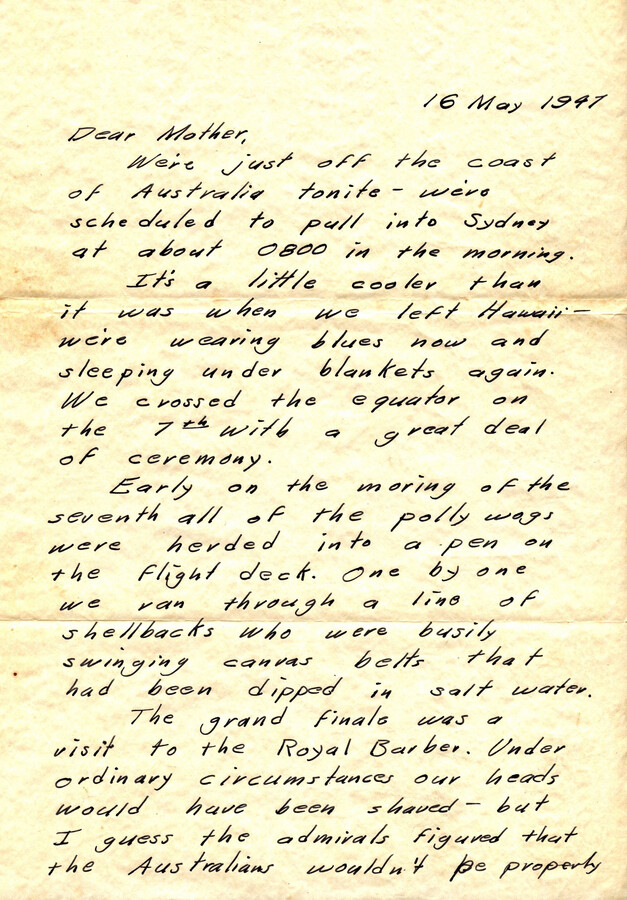 16 May 1947
Dear Mother,
We're just off the coast
of Australia tonite - we're
scheduled to pull into Sydney
at about 0800 in the morning.
It's a little cooler than
it was when we left Hawaii -
we're wearing blues now and
sleeping under blankets again.
We crossed the equator on
the 7th with a great deal
of ceremony.
Early on the moring of the
seventh all of the polly wogs
were herded into a pen on
the flight deck. One by one
we ran through a line of
shellbacks who were busily
swinging canvas belts that
had been dipped in salt water.
The grand finale was a
visit to the Royal Barber. Under
ordinary circumstances our heads
would have been shaved - but
I guess the admirals figured that
the Australians wouldn't be properly